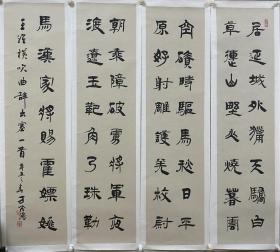 居延城外獵天驕白
草連山野火燒暮雲
空磧時驅馬秋日平
原好射雕護羌校尉
朝乘障破虜將軍夜
渡遼玉靶角弓珠勒
馬漢家將賜霍嫖姚
王維橫吹曲辭出塞一首